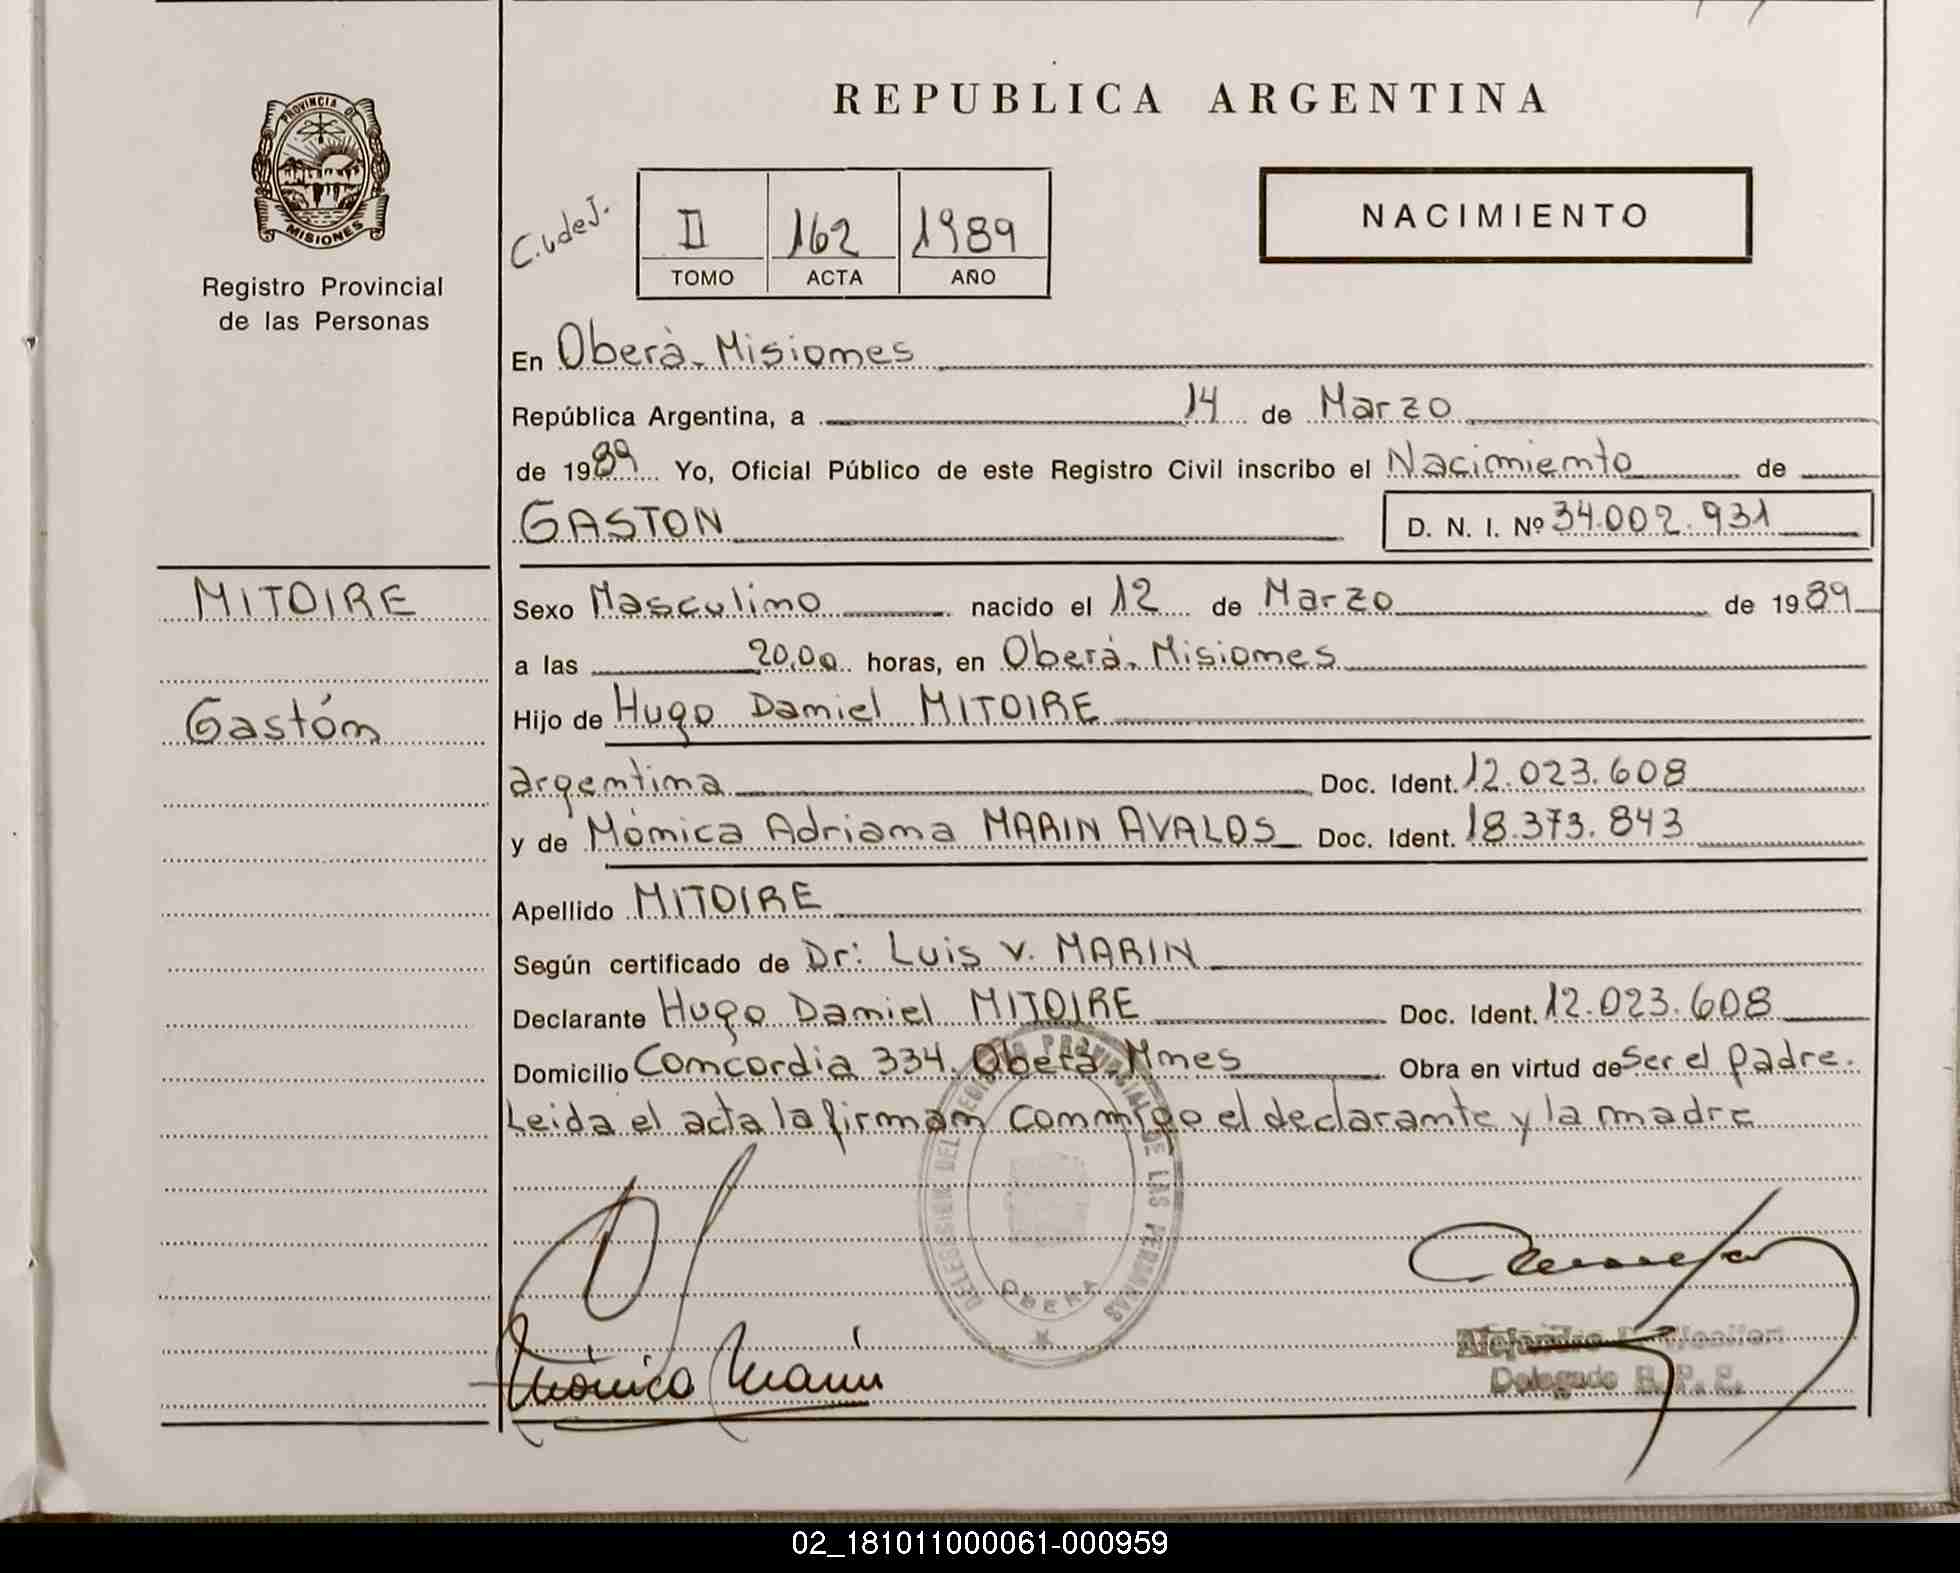 PROVINCIA DE
MISIONES
Registro Provincial
de las Personas
MITOIRE
Gastón
REPUBLICA ARGENTINA
C.UdeJ.
II 162 1989
TOMO ACTA AÑO
NACIMIENTO
En Oberà - Misiones
República Argentina, a 14 de Marzo
de 1989 Yo, Oficial Público de este Registro Civil inscribo el Nacimiento de
GASTON D. N. I. Nº 34.002.931
Sexo Masculino nacido el 12 de Marzo de 1989
a las 20,00 horas, en Oberá - Misiones
Hijo de Hugo Daniel MITOIRE
argentina Doc. Ident. 12.023.608
y de Mónica Adriana MARIN AVALOS Doc. Ident. 18.373.843
Apellido MITOIRE
Según certificado de Dr: Luis V. MARIN
Declarante Hugo Daniel MITOIRE Doc. Ident. 12.023.608
Domicilio Concordia 334. Oberá - Mnes Obra en virtud de Ser el padre.
Leida el acta la firman conmigo el declarante y la madre
DELEGACION DEL REGISTRO PROVINCIAL DE LAS PERSONAS
OBERA
Mónica Marin
Alejandro
Delegado R. P. P.
02_181011000061-000959